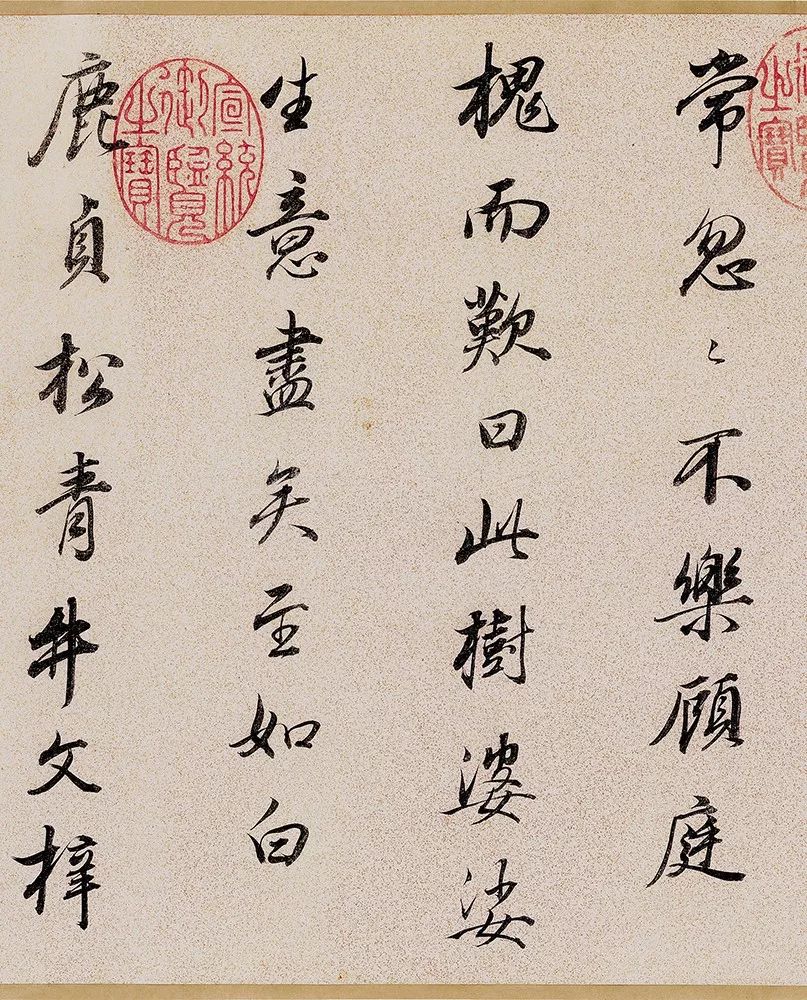 常忽〻不樂顧庭
槐而歎曰此樹婆娑
生意盡矣至如白
鹿貞松青井文梓
宣統御覽之寶